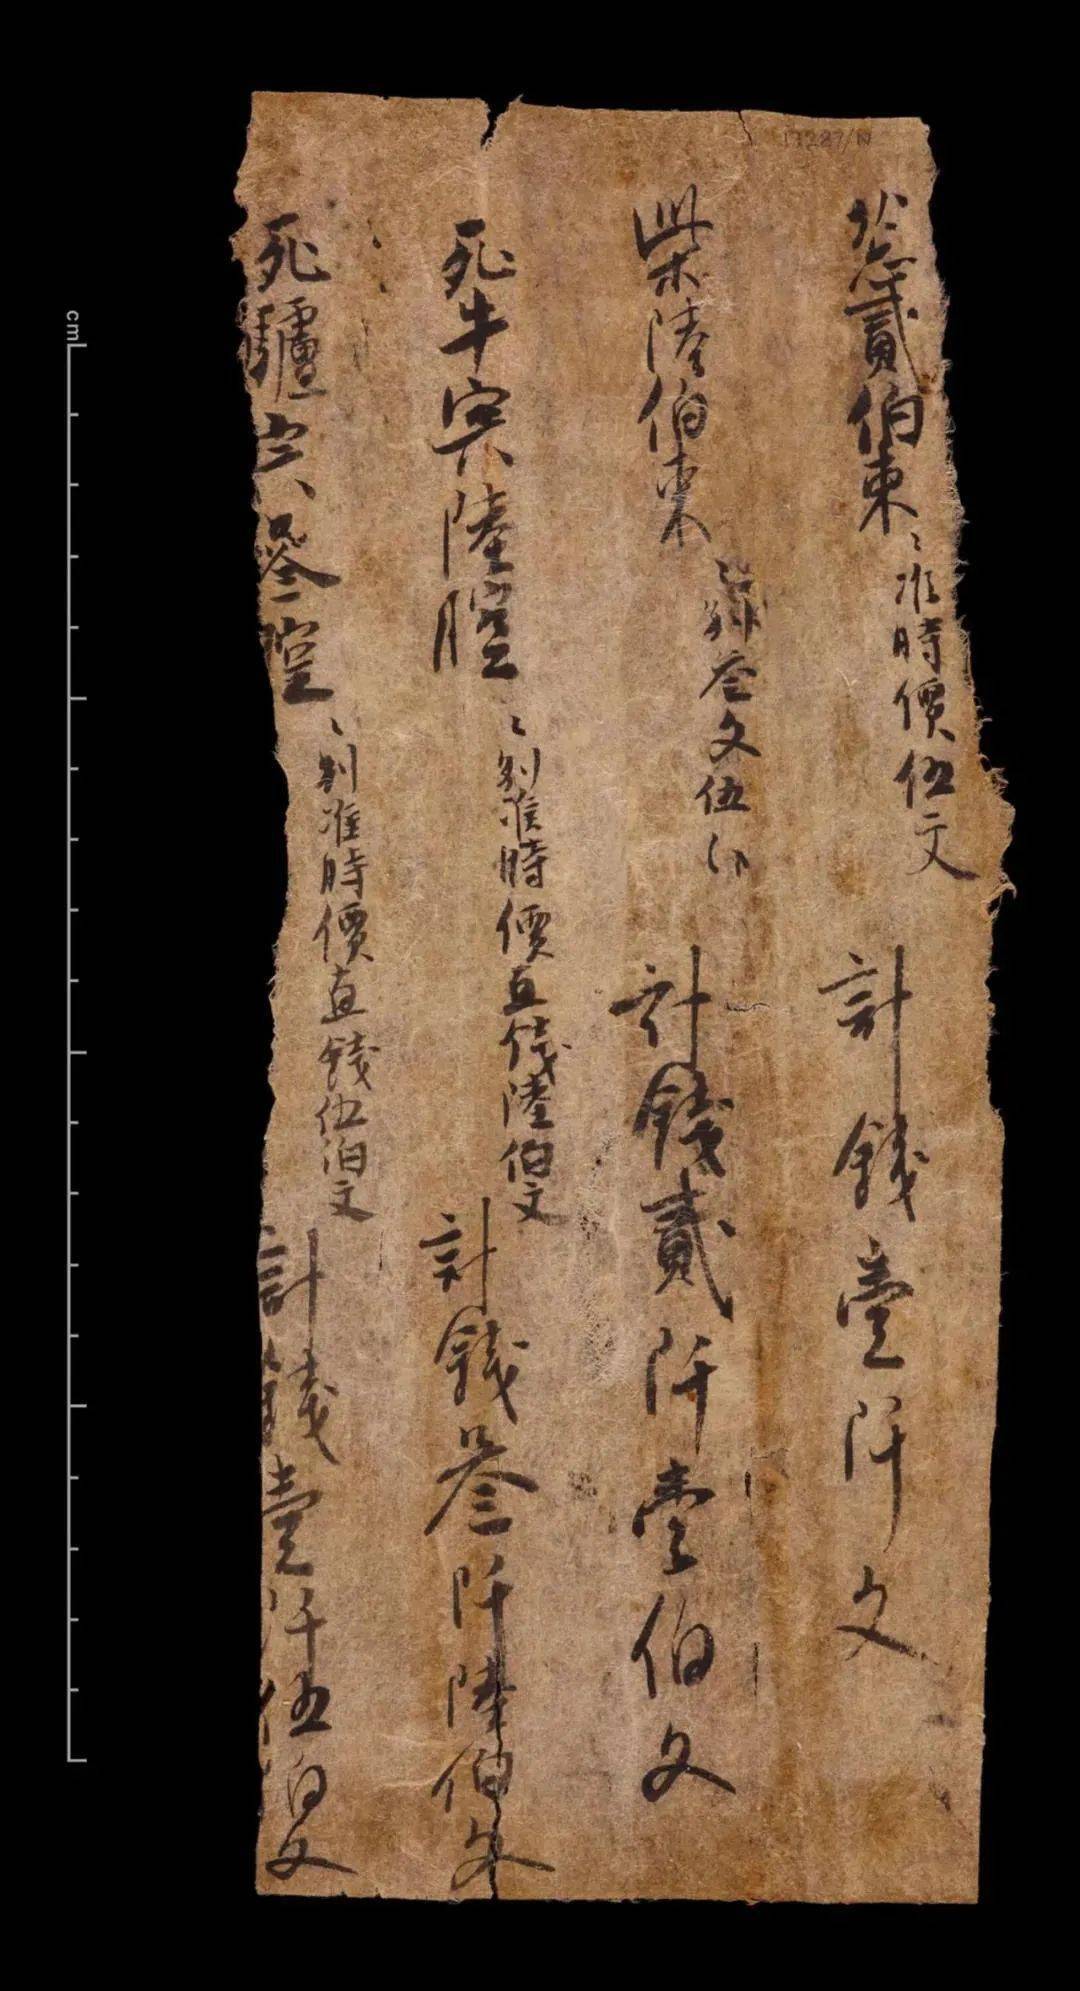 葱貳伯束〻准時價伍文計錢壹阡文
柴陸伯束叁文伍分計錢貳阡壹伯文
死牛宍陸腔〻別准時價直錢陸伯文計錢叁阡陸伯文
死驢宍叁腔〻別准時價直錢伍伯文計錢壹阡伍伯文